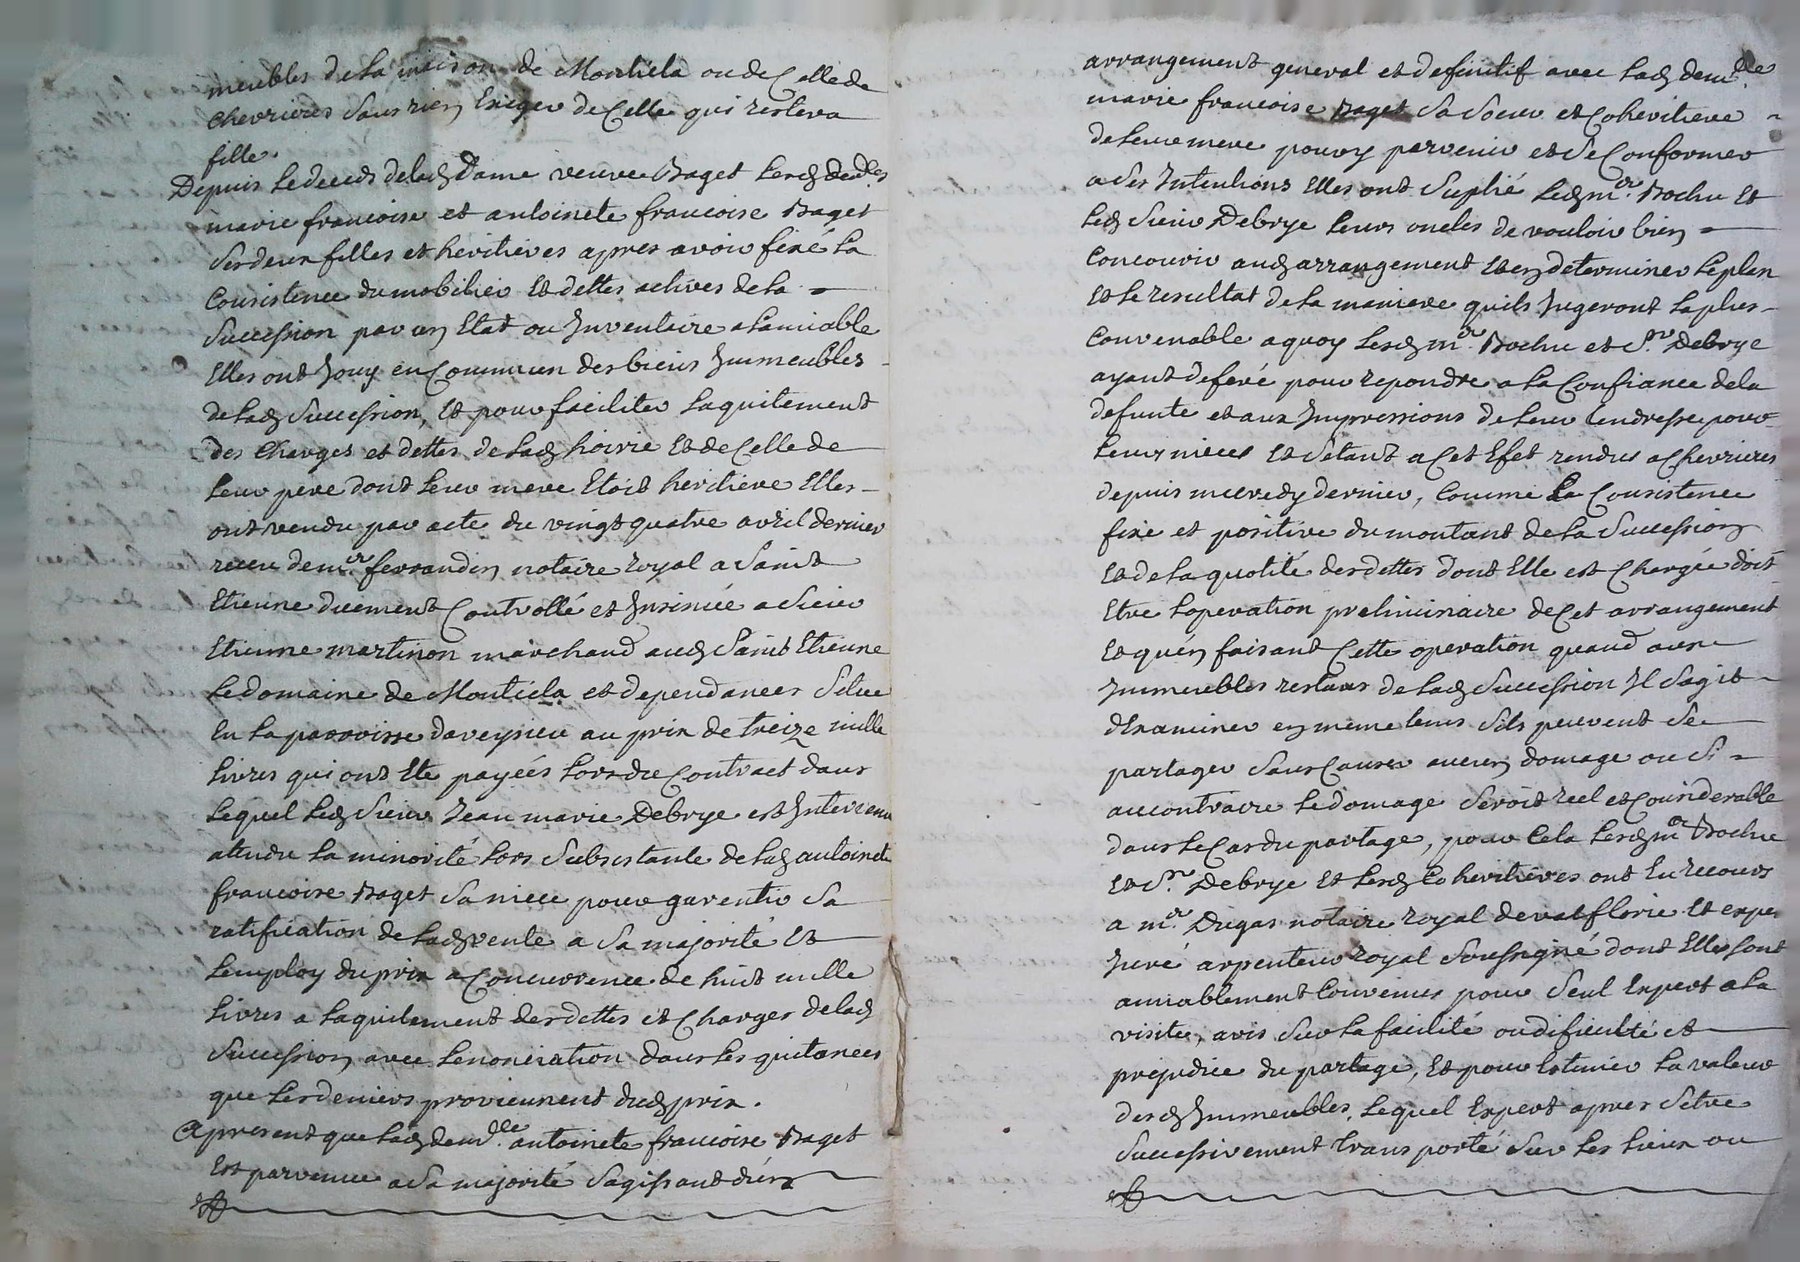 meubles de la maison de Montiela ou de Celle de
chevrieres sans rien Exiger de Celle qui restera
fille.
Depuis le deceds de lad Dame veuve Baget lesd dedlles
marie francoise et antoinete francoise Baget
ses deux filles et heritieres apres avoir fixé la
Consistence du mobilier Et dettes actives de la
Succession par un Etat ou Inventaire a lamiable
Elles ont Jouy en Commun des biens Immeubles
de lad Succession, Et pour faciliter laquitement
des Charges et dettes de lad hoirie Et de Celle de
leur pere dont leur mere Etoit heritiere Elles
ont vendu par acte du vingt quatre avril dernier
receu de mr ferrandin notaire royal a Saint
Etienne duement Controllé et Insinué a Sieur
Etienne martinon marchand aud Saint Etienne
le domaine de Montiela et dependances Situé
En la parroisse daveysieu au prix de treize mille
livres qui ont Eté payées lors du Contract dans
lequel led Sieur Jean marie Debrye est Intervenu
atendu la minorité lors Subsistante de lad antoinete
francoise Baget Sa niece pour garentir Sa
ratification de lad vente a Sa majorité Et
lemploy du prix a Concurrence de huit mille
livres a laquitement des dettes et Charges de lad
Succession avec lenonciation dans les quitances
que les deniers proviennent dud prix.
Apresent que lad demlle antoinete francoise Baget
Est parvenue a Sa majorité Sagissant dun
arrangement general et definitif avec lad demlle
marie francoise Baget Sa Soeur et Coheritiere
de leur mere pour y parvenir et Se Conformer
a Ses Intentions Elles ont Suplié led mr Bochu Et
led Sieur Debrye leurs oncles de vouloir bien
Concourir aud arrangement Et en determiner le plan
Et le resultat de la maniere quils Jugeront la plus
Convenable a quoy lesd mr Bochu et Sr Debrye
ayant deferé pour repondre a la Confiance de la
defunte et aux Impressions de leur tendresse pour
leurs nieces Et Sétant a Cet Efet rendus a Chevrieres
depuis mecredy dernier, Comme La Consistence
fixe et positive du montant de la Succession
Et de la quotité des dettes dont Elle est Chargée doit
Etre loperation preliminaire de Cet arrangement
Et quén faisant Cette operation quand aux
Immeubles restans de lad Succession Il Sagit
dExaminer en meme tems Sils peuvent Se
partager Sans Causer aucun domage ou Si
au contraire le domage Seroit reel et Considerable
dans le Cas du partage, pour Cela lesd mr Bochu
Et Sr Debrye Et lesd Coheritieres ont Eu recours
a mr Dugas notaire royal de valflorie Et expert
Juré arpenteur royal Soussigné dont Elles Sont
amiablement Convenues pour Seul Expert a la
visite, avis Sur la facilité ou dificulté et
prejudice du partage, Et pour Estimer la valeur
desd Immeubles, lequel Expert apres Setre
Successivement transporté Sur les lieux ou